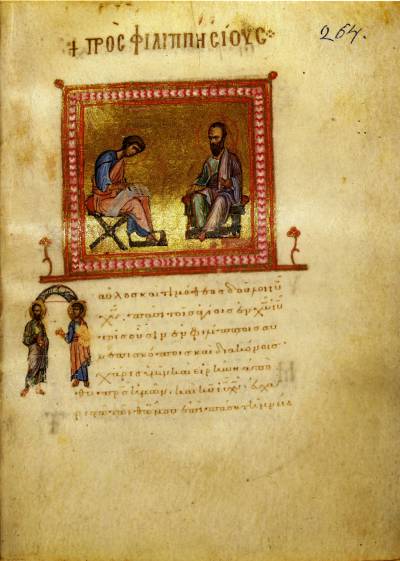 + ΠΡΟΣ ΦΙΛΙΠΠΗΣΙΟΥΣ
264.
αῦλος καὶ τιμόθεος δοῦλοι ιυ
χυ πᾶσι τοῖς ἁγίοις ἐν χω ιυ
τοῖς οὖσιν ἐν φιλίπποις συ
νεπισκόποις καὶ διακόνοις
χάρις ὑμῖν καὶ εἰρήνη ἀπὸ
θυ πρς ἡμῶν καὶ κυ ιυ χυ εὐχα
ριστῶ τῷ θω μου ἐπὶ πάσῃ τῇ μνεία